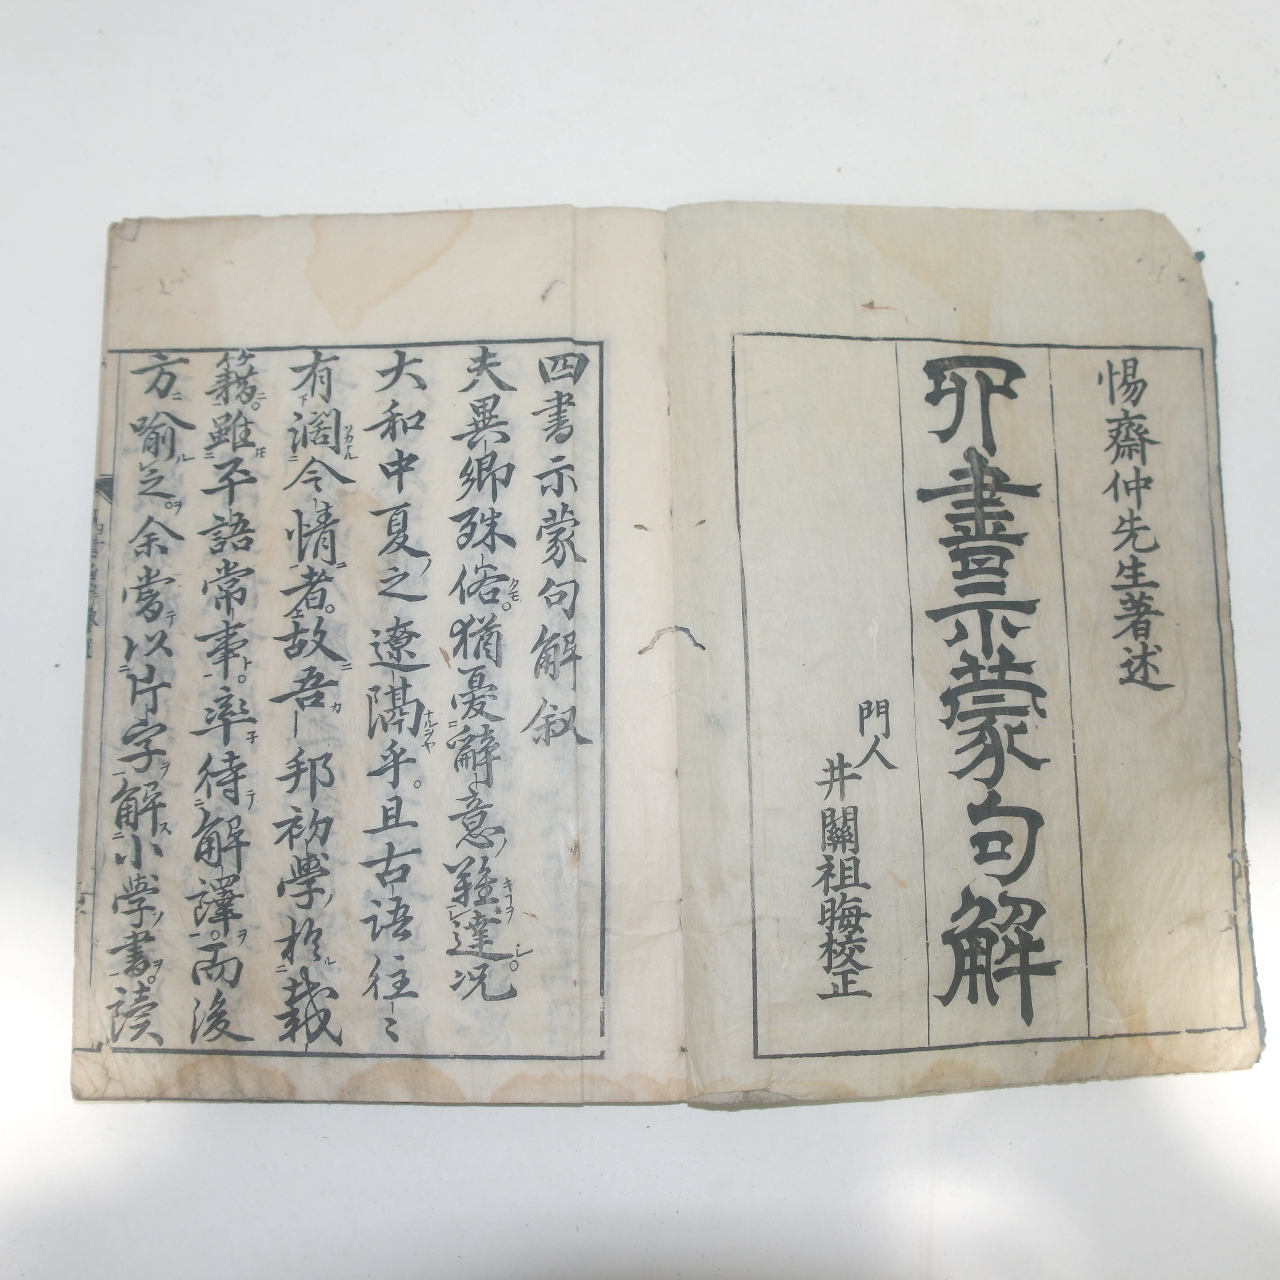 惕齋仲先生著述
四書示蒙句解
門人
井關祖晦校正
四書示蒙句解叙
夫異鄕殊俗猶憂辭意難達況
大和中夏之遼隔乎且古語往〻
有濶今情者故吾邦初學於載
籍雖子語常事率待解譯而後
方喻之余嘗以片字解小學書讀